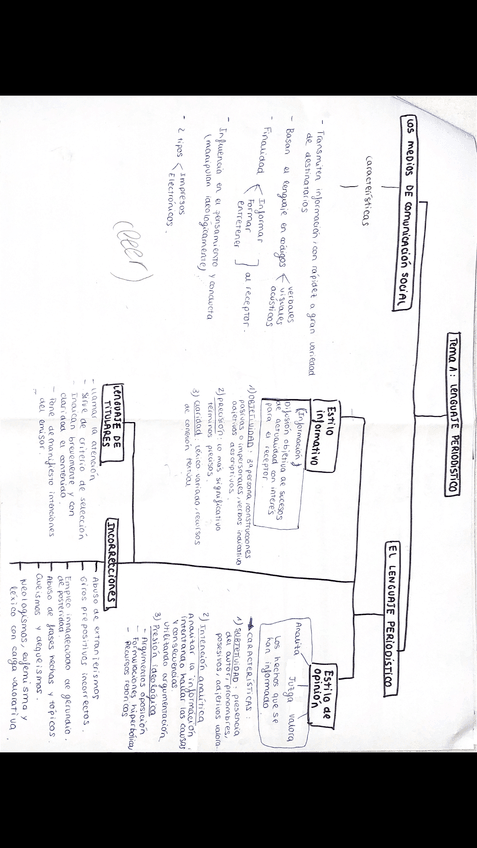 Tema 1: LENGUAJE PERIODÍSTICO
LOS MEDIOS DE COMUNICACIÓN SOCIAL
características
- Transmiten información con rapidez a gran variedad
de destinatarios
- Basan el lenguaje en códigos < verbales
visuales
acústicos
- Finalidad < Informar
Formar
Entretener ] al receptor.
- Influencia en el pensamiento y conducta
(manipulan ideológicamente)
- 2 tipos < Impresos
Electrónicos.
(leer)
EL LENGUAJE PERIODÍSTICO
Estilo
informativo
(Información)
Difusión objetiva de sucesos
de actualidad con interés
para el receptor.
1) OBJETIVIDAD: 3ª persona, construcciones
pasivas o impersonales, verbos indicativo
adjetivos descriptivos.
2) precisión: lo más significativo
términos precisos.
3) claridad léxico variado, recursos
de cohesión textual
Estilo de
opinión
Analiza Juzga valora
Los hechos que se
han informado
CARACTERÍSTICAS:
1) SUBJETIVIDAD: presencia
del autor, pronombres,
posesivos, adjetivos valora.
2) Intención analítica
Analizar la información
intentando hallar las causas
y consecuencias
utilizando argumentación.
3) Presión ideológica
- Argumentos oposición
- Formulaciones hiperbólicas
- Recursos retóricos
LENGUAJE DE
TITULARES
- Llamar la atención
- Sirve de criterio de selección
- Indican brevemente y con
claridad el contenido
- Pone de manifiesto intenciones
del emisor
INCORRECCIONES
- Abuso de extranjerismos
- Giros prepositivos incorrectos.
- Empleo inadecuado de gerundio.
de posteridad
- Abuso de frases hechas y tópicos.
- Queísmos y dequeísmos.
- Neologismos, eufemismo y
léxico con carga valorativa.